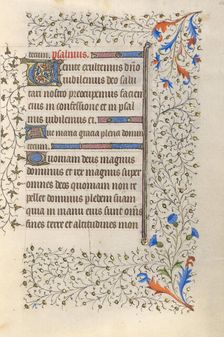 tecum. psalmus.
Venite exultemus dno
iubilemus deo salu
tari nostro preocupemus faciem
eius in confessione et in psal
mis iubilemus ei.
Aue maria gracia plena domin
tecum.
Quoniam deus magnus
dominus et rex magnus super
omnes deos quoniam non re
pellet dominus plebem suam
quia in manu eius sunt omnes
fines terre et altitudines mon